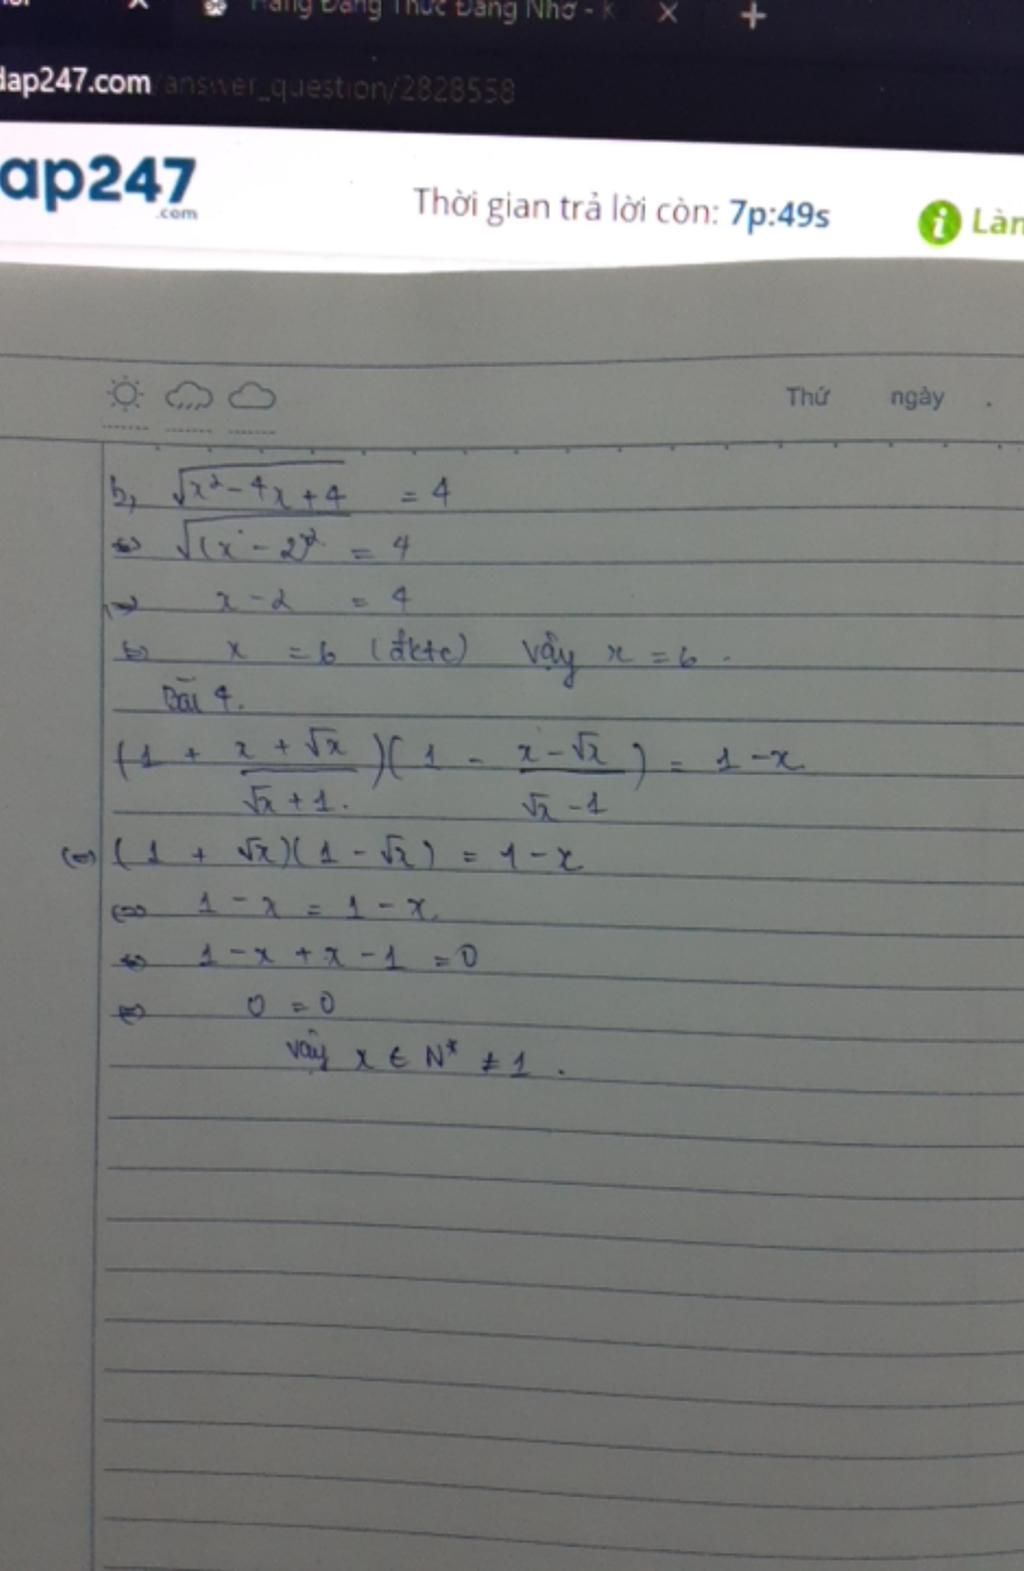 Hằng Đẳng Thức Đáng Nhớ - k
dap247.com/answer_question/2828558
ap247
.com
Thời gian trả lời còn: 7p:49s
Làn
Thứ ngày .
b, √(x² - 4x + 4) = 4
⇔ √(x - 2)² = 4
⇔ x - 2 = 4
⇔ x = 6 (đktc) Vậy x = 6.
Bài 4.
(1 + (x + √x)/(√x + 1))(1 - (x - √x)/(√x - 1)) = 1 - x
⇔ (1 + √x)(1 - √x) = 1 - x
⇔ 1 - x = 1 - x.
⇔ 1 - x + x - 1 = 0
⇔ 0 = 0
Vậy x ∈ N* ≠ 1.